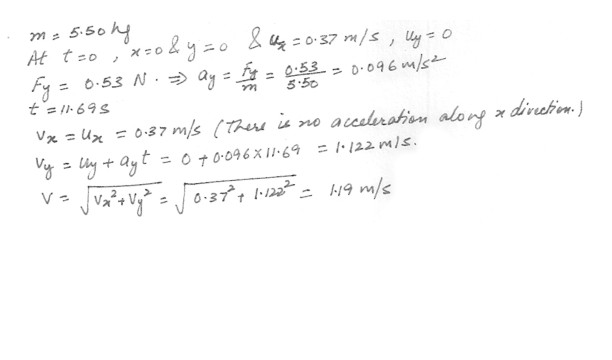 m = 5.50 kg
At t=0, x=0 & y=0 & ux = 0.37 m/s, uy = 0
Fy = 0.53 N. ⇒ ay = Fy/m = 0.53/5.50 = 0.096 m/s²
t = 11.69 s
Vx = Ux = 0.37 m/s (There is no acceleration along x direction.)
Vy = Uy + ayt = 0 + 0.096 × 11.69 = 1.122 m/s.
V = √Vx² + Vy² = √0.37² + 1.122² = 1.19 m/s